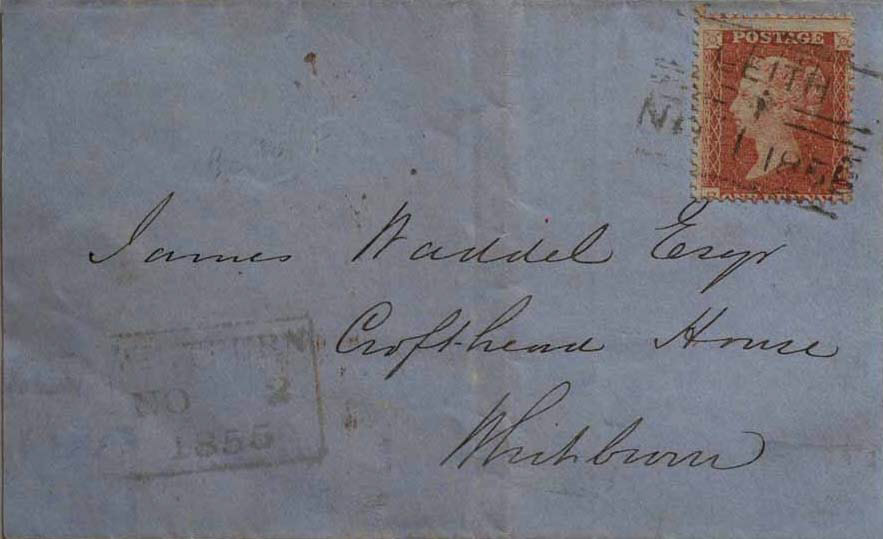 POSTAGE
LEITH
NO
1 185
James Waddel Esqr
Crofthead House
Whitburn
NO 2
1855